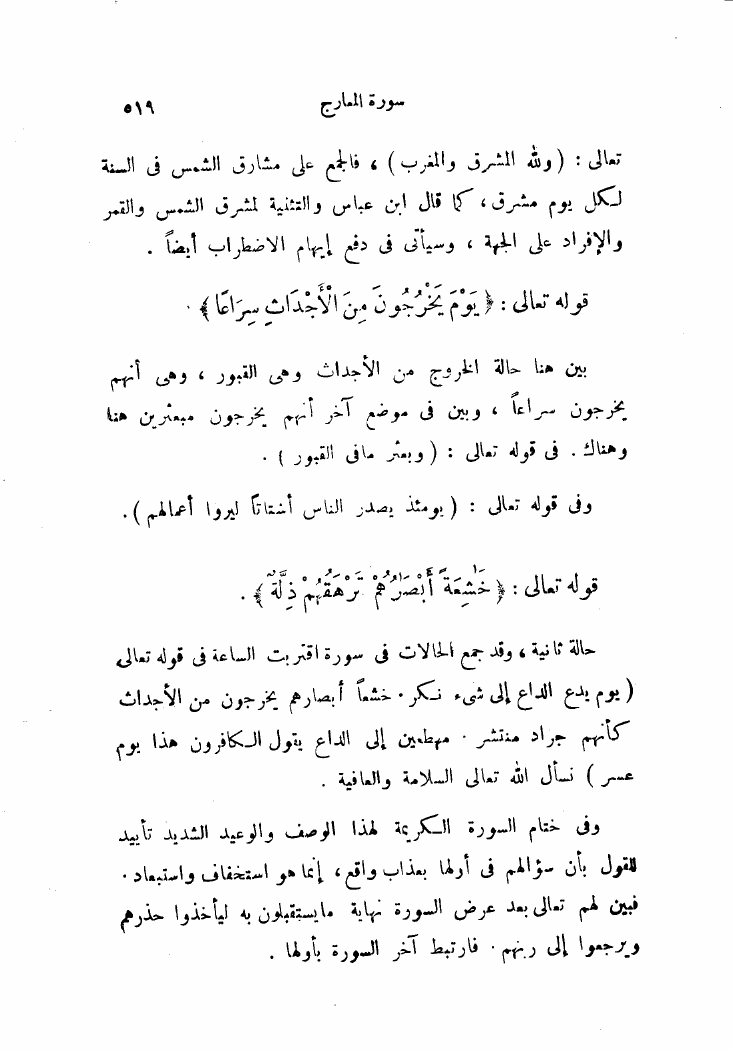 سورة المعارج ٥١٩
تعالى : ( ولله المشرق والمغرب ) ، فالجمع على مشارق الشمس فى السنة
لكل يوم مشرق ، كما قال ابن عباس والتثنية لمشرق الشمس والقمر
والإفراد على الجهة ، وسيأتى فى دفع إيهام الاضطراب أيضاً .
قوله تعالى : ﴿ يَوْمَ يَخْرُجُونَ مِنَ الْأَجْدَاثِ سِرَاعًا ﴾ .
بين هنا حالة الخروج من الأجداث وهى القبور ، وهى أنهم
يخرجون سراعاً ، وبين فى موضع آخر أنهم يخرجون مبعثرين هنا
وهناك . فى قوله تعالى : ( وبعثر مافى القبور ) .
وفى قوله تعالى : ( يومئذ يصدر الناس أشتاتاً ليروا أعمالهم ) .
قوله تعالى : ﴿ خَٰشِعَةً أَبْصَٰرُهُمْ تَرْهَقُهُمْ ذِلَّةٌ ﴾ .
حالة ثانية ، وقد جمع الحالات فى سورة اقتربت الساعة فى قوله تعالى
( يوم يدع الداع إلى شىء نكر . خشعاً أبصارهم يخرجون من الأجداث
كأنهم جراد منتشر . مهطعين إلى الداع يقول الكافرون هذا يوم
عسر ) نسأل الله تعالى السلامة والعافية .
وفى ختام السورة الكريمة لهذا الوصف والوعيد الشديد تأييد
للقول بأن سؤالهم فى أولها بعذاب واقع ، إنما هو استخفاف واستبعاد .
فبين لهم تعالى بعد عرض السورة نهاية مايستقبلون به ليأخذوا حذرهم
ويرجعوا إلى ربهم . فارتبط آخر السورة بأولها .